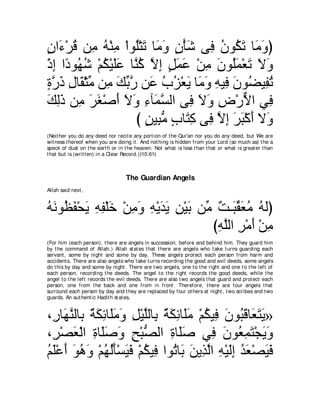 (وَمَا تَكُونُ فِى شَأْنٍ وَمَا تَتْلُواْ مِنْهُ مِن قُرْءَانٍ
وَلاَ تَعْمَلُونَ مِنْ عَمَلٍ إِلاَّ كُنَّا عَلَيْكُمْ شُهُودًا إِذْ
تُفِيضُونَ فِيهِ وَمَا يَعْزُبُ عَن رَّبِّكَ مِن مِّثْقَالِ ذَرَّةٍ
فِي الاٌّرْضِ وَلاَ فِى السَّمَآءِ وَلاَ أَصْغَرَ مِن ذَلِكَ
وَلا أَكْبَرَ إِلاَّ فِى كِتَابٍ مُّبِينٍ )
(Neither you do any deed nor recite any portion of the Qur'an nor you do any deed, but We are
witness thereof when you are doing it. And nothing is hidden from your Lord (so much as) the a
speck of dust on the earth or in the heaven. Not what is less than that or what is greater than
that but is (written) in a Clear Record.)(10:61)
The Guardian Angels
Allah said next,
(لَهُ مُعَقِّبَـتٌ مِّن بَيْنِ يَدَيْهِ وَمِنْ خَلْفِهِ يَحْفَظُونَهُ
مِنْ أَمْرِ اللَّهِ)
(For him (each person), there are angels in succession, before and behind him. They guard him
by the command of Allah.) Allah states that there are angels who take turns guarding each
servant, some by night and some by day. These angels protect each person from harm and
accidents. There are also angels who take turns recording the good and evil deeds, some angels
do this by day and some by night. There are two angels, one to the right and one to the left of
each person, recording the deeds. The angel to the right records the good deeds, while the
angel to the left records the evil deeds. There are also two angels that guard and protect each
person, one from the back and one from in front. Therefore, there are four angels that
surround each person by day and they are replaced by four others at night, two scribes and two
guards. An authentic Hadith states,
«يَتَعَاقَبُونَ فِيكُمْ مَلَائِكَةٌ بِاللَّيْلِ وَمَلَائِكَةٌ بِالنَّهَارِ،
وَيَجْتَمِعُونَ فِي صَلَاةِ الصُّبْحِ وَصَلَاةِ الْعَصْرِ،
فَيَصْعَدُ إِلَيْهِ الَّذِينَ بَاتُوا فِيكُمْ فَيَسْأَلُهُمْ وَهُوَ أَعْلَمُ